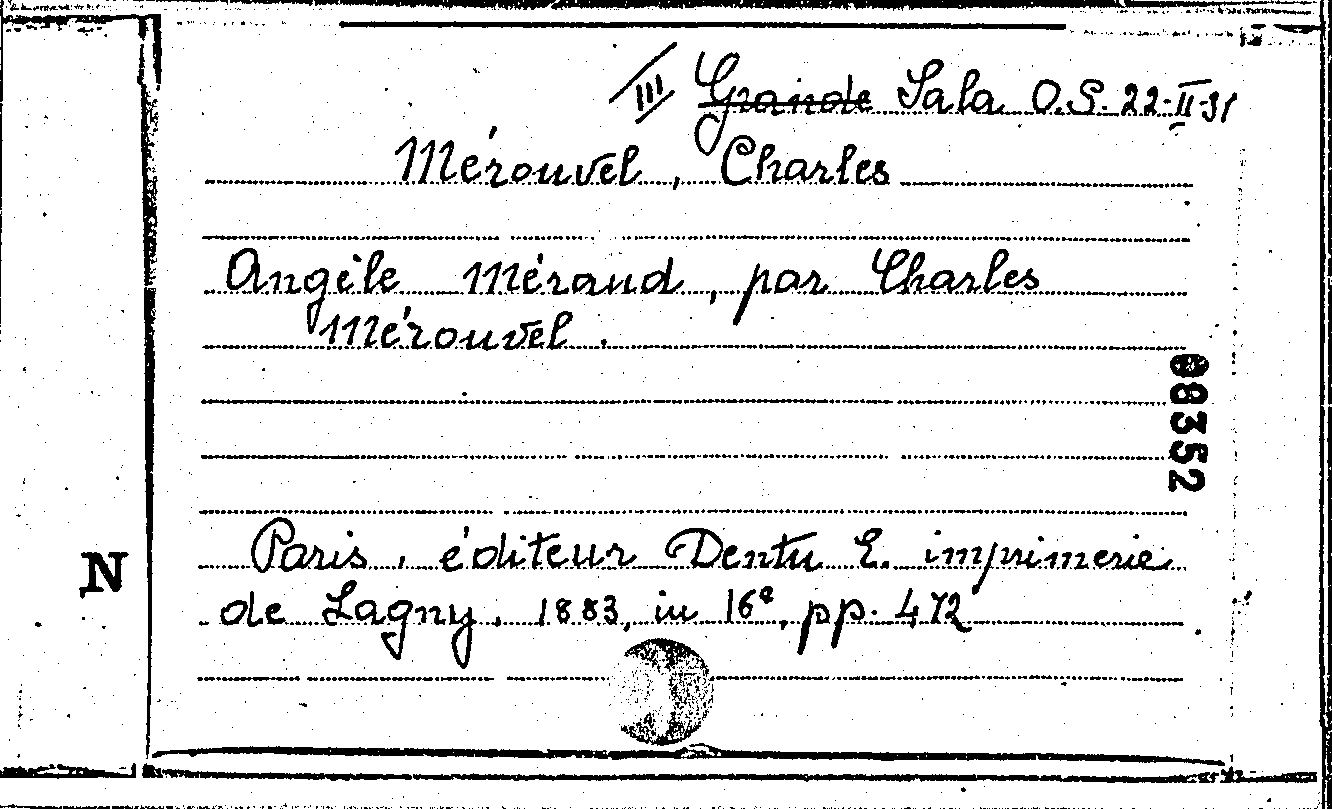 III Grande Sala O.S. 22-II-31
Mérouvel, Charles
Angèle Méraud, par Charles
Mérouvel.
08352
Paris, éditeur Dentu E. imprimerie
N
de Lagny, 1883, in 16º, pp. 472